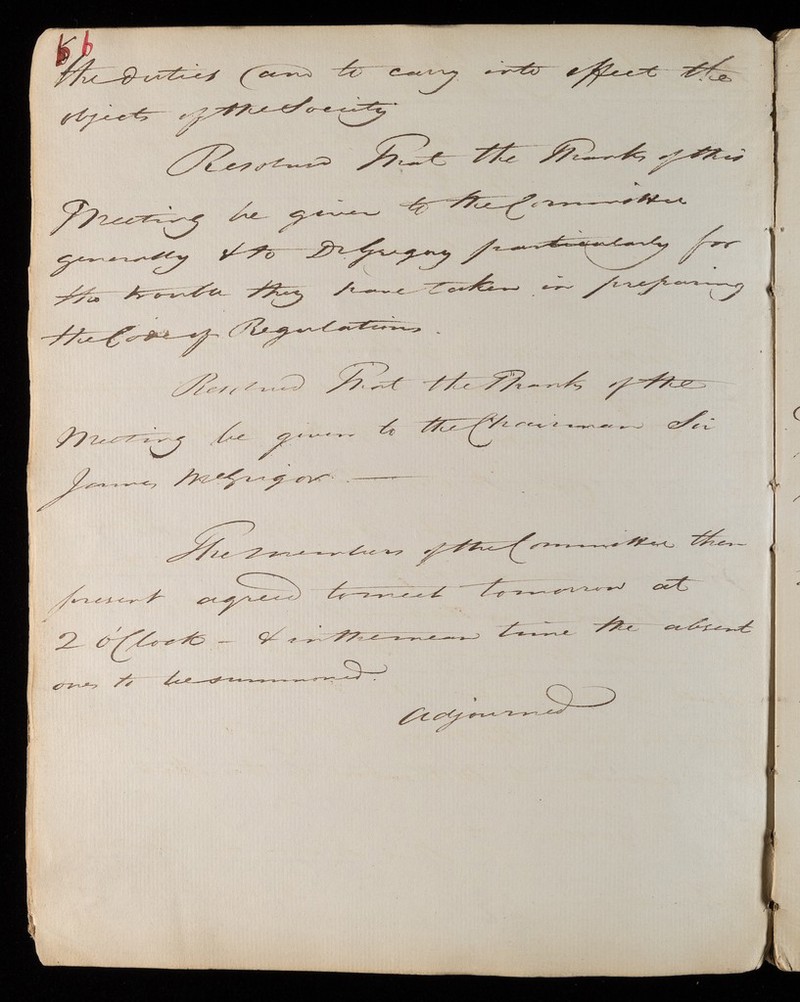 56
the duties (and to carry into effect the
objects of the Society
Resolved That the Thanks of this
Meeting be given to the Committee
generally & to Dr Gregory particularly for
the trouble they have taken in preparing
the Code of Regulations.
Resolved That the Thanks of the
Meeting be given to the Chairman Sir
James McGrigor. —
The members of the Committee then
present agreed to meet tomorrow at
2 o'Clock - & in the mean time the absent
ones to be summoned.
Adjourned